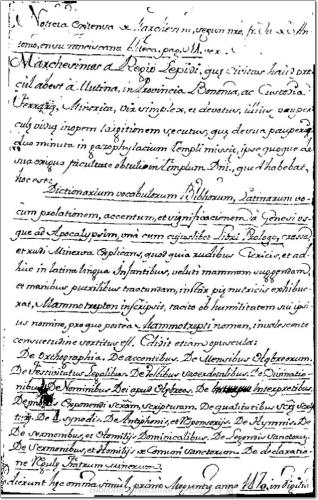 Noticia extensa de Marchesini, segun nro. fr. Ju. de S. An-
tonio, en su Franciscana
Marchesinus a Regio Lepidi, que civitas haud pro-
cul abest a Mutina, in Provincia Bononia, ac Custodia
Minorita, vir simplex, et devotus, illius pauper-
culę viduę inopem largitionem secutus, quę de sua pauperta
duo minuta in gazophylacium templi missit, ipse quoque de
sua exigua facultate obtulit in templum Dni., quod habebat,
hoc est:
Dictionarium vocabulorum Bibliorum, Latinarum vo-
cum prolationem, accentum, et significationem, a Genesi us-
que ad Apocalypsim, una cum cujuslibet Libri Prologo, crassa,
et rudi Minerva explicans, quod quia rudibus Clericis, et ad-
huc in latina lingua Infantibus, veluti mammam sugendam,
et manibus puerilibus tractandam, instar pię nutricis exhibue-
rat, Mammotrepton inscripsit, tacito ob humilitatem sui ipsi-
us nomine, pro quo postea Mammotrepti nomen, invalescente
consuetudine sortitus est. Edidit etiam opuscula:
De Orthographia. De accentibus. De Mensibus Hebreorum.
De Festivitatibus Legalibus. De Vestibus Sacerdotalibus. De Divinatio-
nibus. De Nominibus Dei apud Hebreos. De Interpretibus.
De modis Exponendi sacram Scripturam. De qualitatibus
De 4 Synodis. De Antiphonis, et Responsoriis. De Hymnis. De
De Sermonibus, et Homiliis Dominicalibus. De Legendis Sanctorum
De Sermonibus, et Homiliis de Communi Sanctorum. De declaratio-
ne Regulę Fratrum Minorum.
Prodierunt hęc omnia simul primo Moguntię anno 1470, in